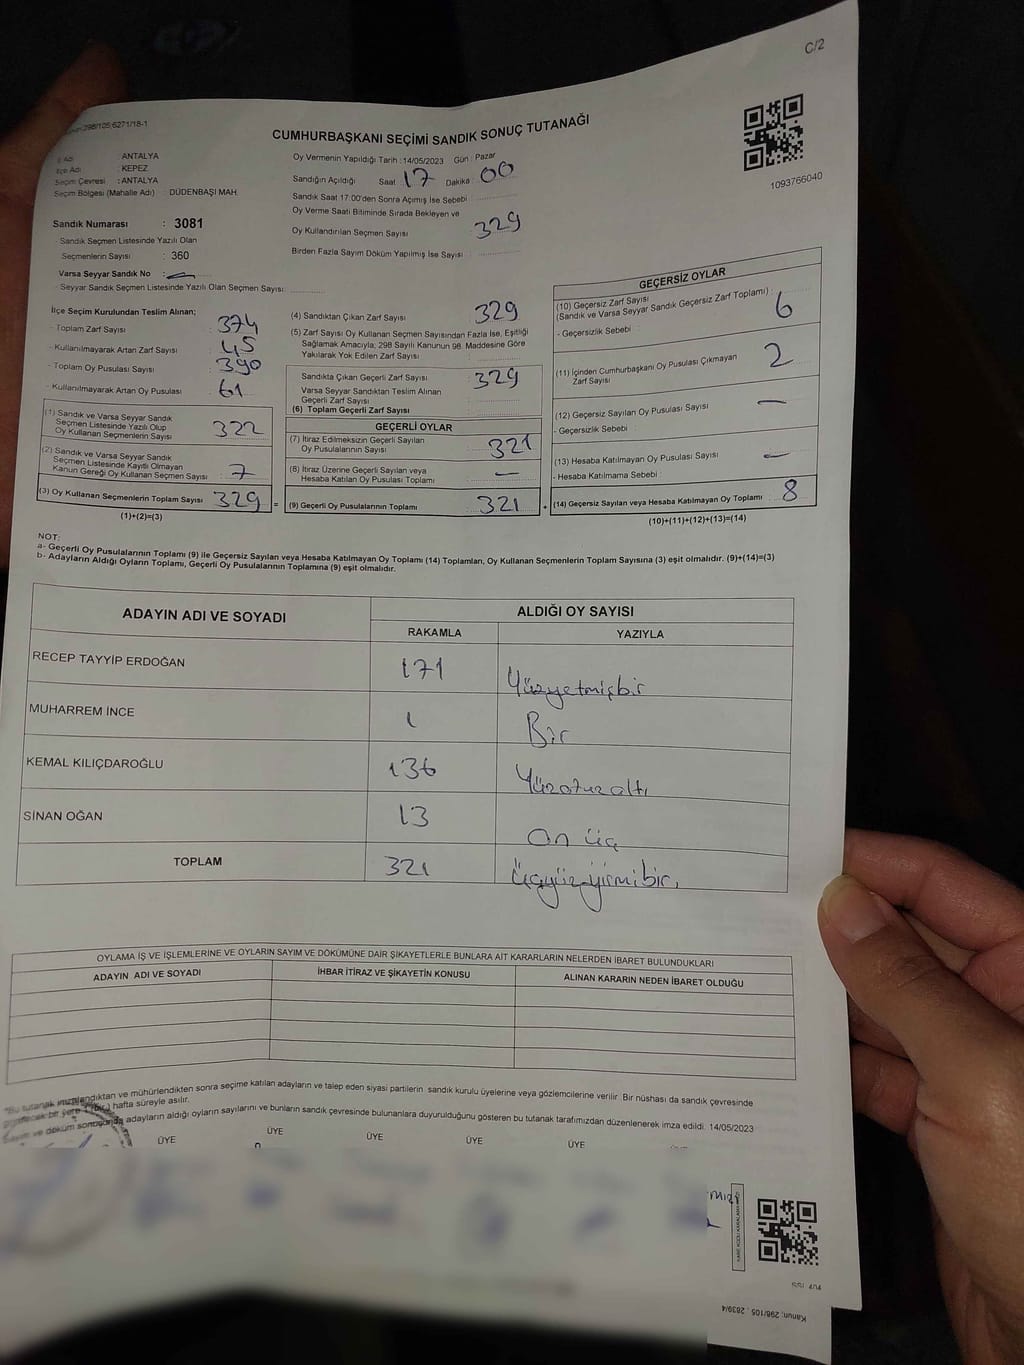 C/2
298/105;6271/18-1
CUMHURBAŞKANI SEÇİMİ SANDIK SONUÇ TUTANAĞI
1093766040
İl Adı : ANTALYA
İlçe Adı : KEPEZ
Seçim Çevresi : ANTALYA
Seçim Bölgesi (Mahalle Adı) : DÜDENBAŞI MAH.
Sandık Numarası : 3081
Sandık Seçmen Listesinde Yazılı Olan
Seçmenlerin Sayısı : 360
Varsa Seyyar Sandık No : —
Seyyar Sandık Seçmen Listesinde Yazılı Olan Seçmen Sayısı:
Oy Vermenin Yapıldığı Tarih : 14/05/2023 Gün : Pazar
Sandığın Açıldığı Saat 17 Dakika : 00
Sandık Saat 17:00'den Sonra Açımış İse Sebebi
Oy Verme Saati Bitiminde Sırada Bekleyen ve
Oy Kullandırılan Seçmen Sayısı : 329
Birden Fazla Sayım Döküm Yapılmış İse Sayısı :
İlçe Seçim Kurulundan Teslim Alınan;
- Toplam Zarf Sayısı : 374
- Kullanılmayarak Artan Zarf Sayısı : 45
- Toplam Oy Pusulası Sayısı : 390
- Kullanılmayarak Artan Oy Pusulası : 61
(1) Sandık ve Varsa Seyyar Sandık
Seçmen Listesinde Yazılı Olup
Oy Kullanan Seçmenlerin Sayısı : 322
(2) Sandık ve Varsa Seyyar Sandık
Seçmen Listesinde Kayıtlı Olmayan
Kanun Gereği Oy Kullanan Seçmen Sayısı : 7
(3) Oy Kullanan Seçmenlerin Toplam Sayısı : 329 =
(1)+(2)=(3)
(4) Sandıktan Çıkan Zarf Sayısı : 329
(5) Zarf Sayısı Oy Kullanan Seçmen Sayısından Fazla İse, Eşitliği
Sağlamak Amacıyla; 298 Sayılı Kanunun 98. Maddesine Göre
Yakılarak Yok Edilen Zarf Sayısı :
Sandıkta Çıkan Geçerli Zarf Sayısı : 329
Varsa Seyyar Sandıktan Teslim Alınan
Geçerli Zarf Sayısı :
(6) Toplam Geçerli Zarf Sayısı
GEÇERLİ OYLAR
(7) İtiraz Edilmeksizin Geçerli Sayılan
Oy Pusulasının Sayısı : 321
(8) İtiraz Üzerine Geçerli Sayılan veya
Hesaba Katılan Oy Pusulası Toplamı : —
(9) Geçerli Oy Pusulalarının Toplamı : 321 +
GEÇERSİZ OYLAR
(10) Geçersiz Zarf Sayısı
(Sandık ve Varsa Seyyar Sandık Geçersiz Zarf Toplamı) : 6
- Geçersizlik Sebebi :
(11) İçinden Cumhurbaşkanı Oy Pusulası Çıkmayan
Zarf Sayısı : 2
(12) Geçersiz Sayılan Oy Pusulası Sayısı : —
- Geçersizlik Sebebi :
(13) Hesaba Katılmayan Oy Pusulası Sayısı : —
- Hesaba Katılmama Sebebi :
(14) Geçersiz Sayılan veya Hesaba Katılmayan Oy Toplamı : 8
(10)+(11)+(12)+(13)=(14)
NOT:
a- Geçerli Oy Pusulalarının Toplamı (9) ile Geçersiz Sayılan veya Hesaba Katılmayan Oy Toplamı (14) Toplamları, Oy Kullanan Seçmenlerin Toplam Sayısına (3) eşit olmalıdır. (9)+(14)=(3)
b- Adayların Aldığı Oyların Toplamı, Geçerli Oy Pusulalarının Toplamına (9) eşit olmalıdır.
ADAYIN ADI VE SOYADI ALDIĞI OY SAYISI
RAKAMLA YAZIYLA
RECEP TAYYİP ERDOĞAN 171 Yüzyetmişbir
MUHARREM İNCE 1 Bir
KEMAL KILIÇDAROĞLU 136 Yüzotuzaltı
SİNAN OĞAN 13 On üç
TOPLAM 321 Üçyüz yirmibir.
OYLAMA İŞ VE İŞLEMLERİNE VE OYLARIN SAYIM VE DÖKÜMÜNE DAİR ŞİKAYETLERLE BUNLARA AİT KARARLARIN NELERDEN İBARET BULUNDUKLARI
ADAYIN ADI VE SOYADI İHBAR İTİRAZ VE ŞİKAYETİN KONUSU ALINAN KARARIN NEDEN İBARET OLDUĞU
"Bu tutanak imzalandıktan ve mühürlendikten sonra seçime katılan adayların ve talep eden siyasi partilerin sandık kurulu üyelerine veya gözlemcilerine verilir. Bir nüshası da sandık çevresinde
bir yere 1 (bir) hafta süreyle asılır.
Sayım ve döküm sonucunda adayların aldığı oyların sayılarını ve bunların sandık çevresinde bulunanlara duyurulduğunu gösteren bu tutanak tarafımızdan düzenlenerek imza edildi. 14/05/2023
ÜYE ÜYE ÜYE ÜYE ÜYE
Kanun: 298/105 , 2839/4